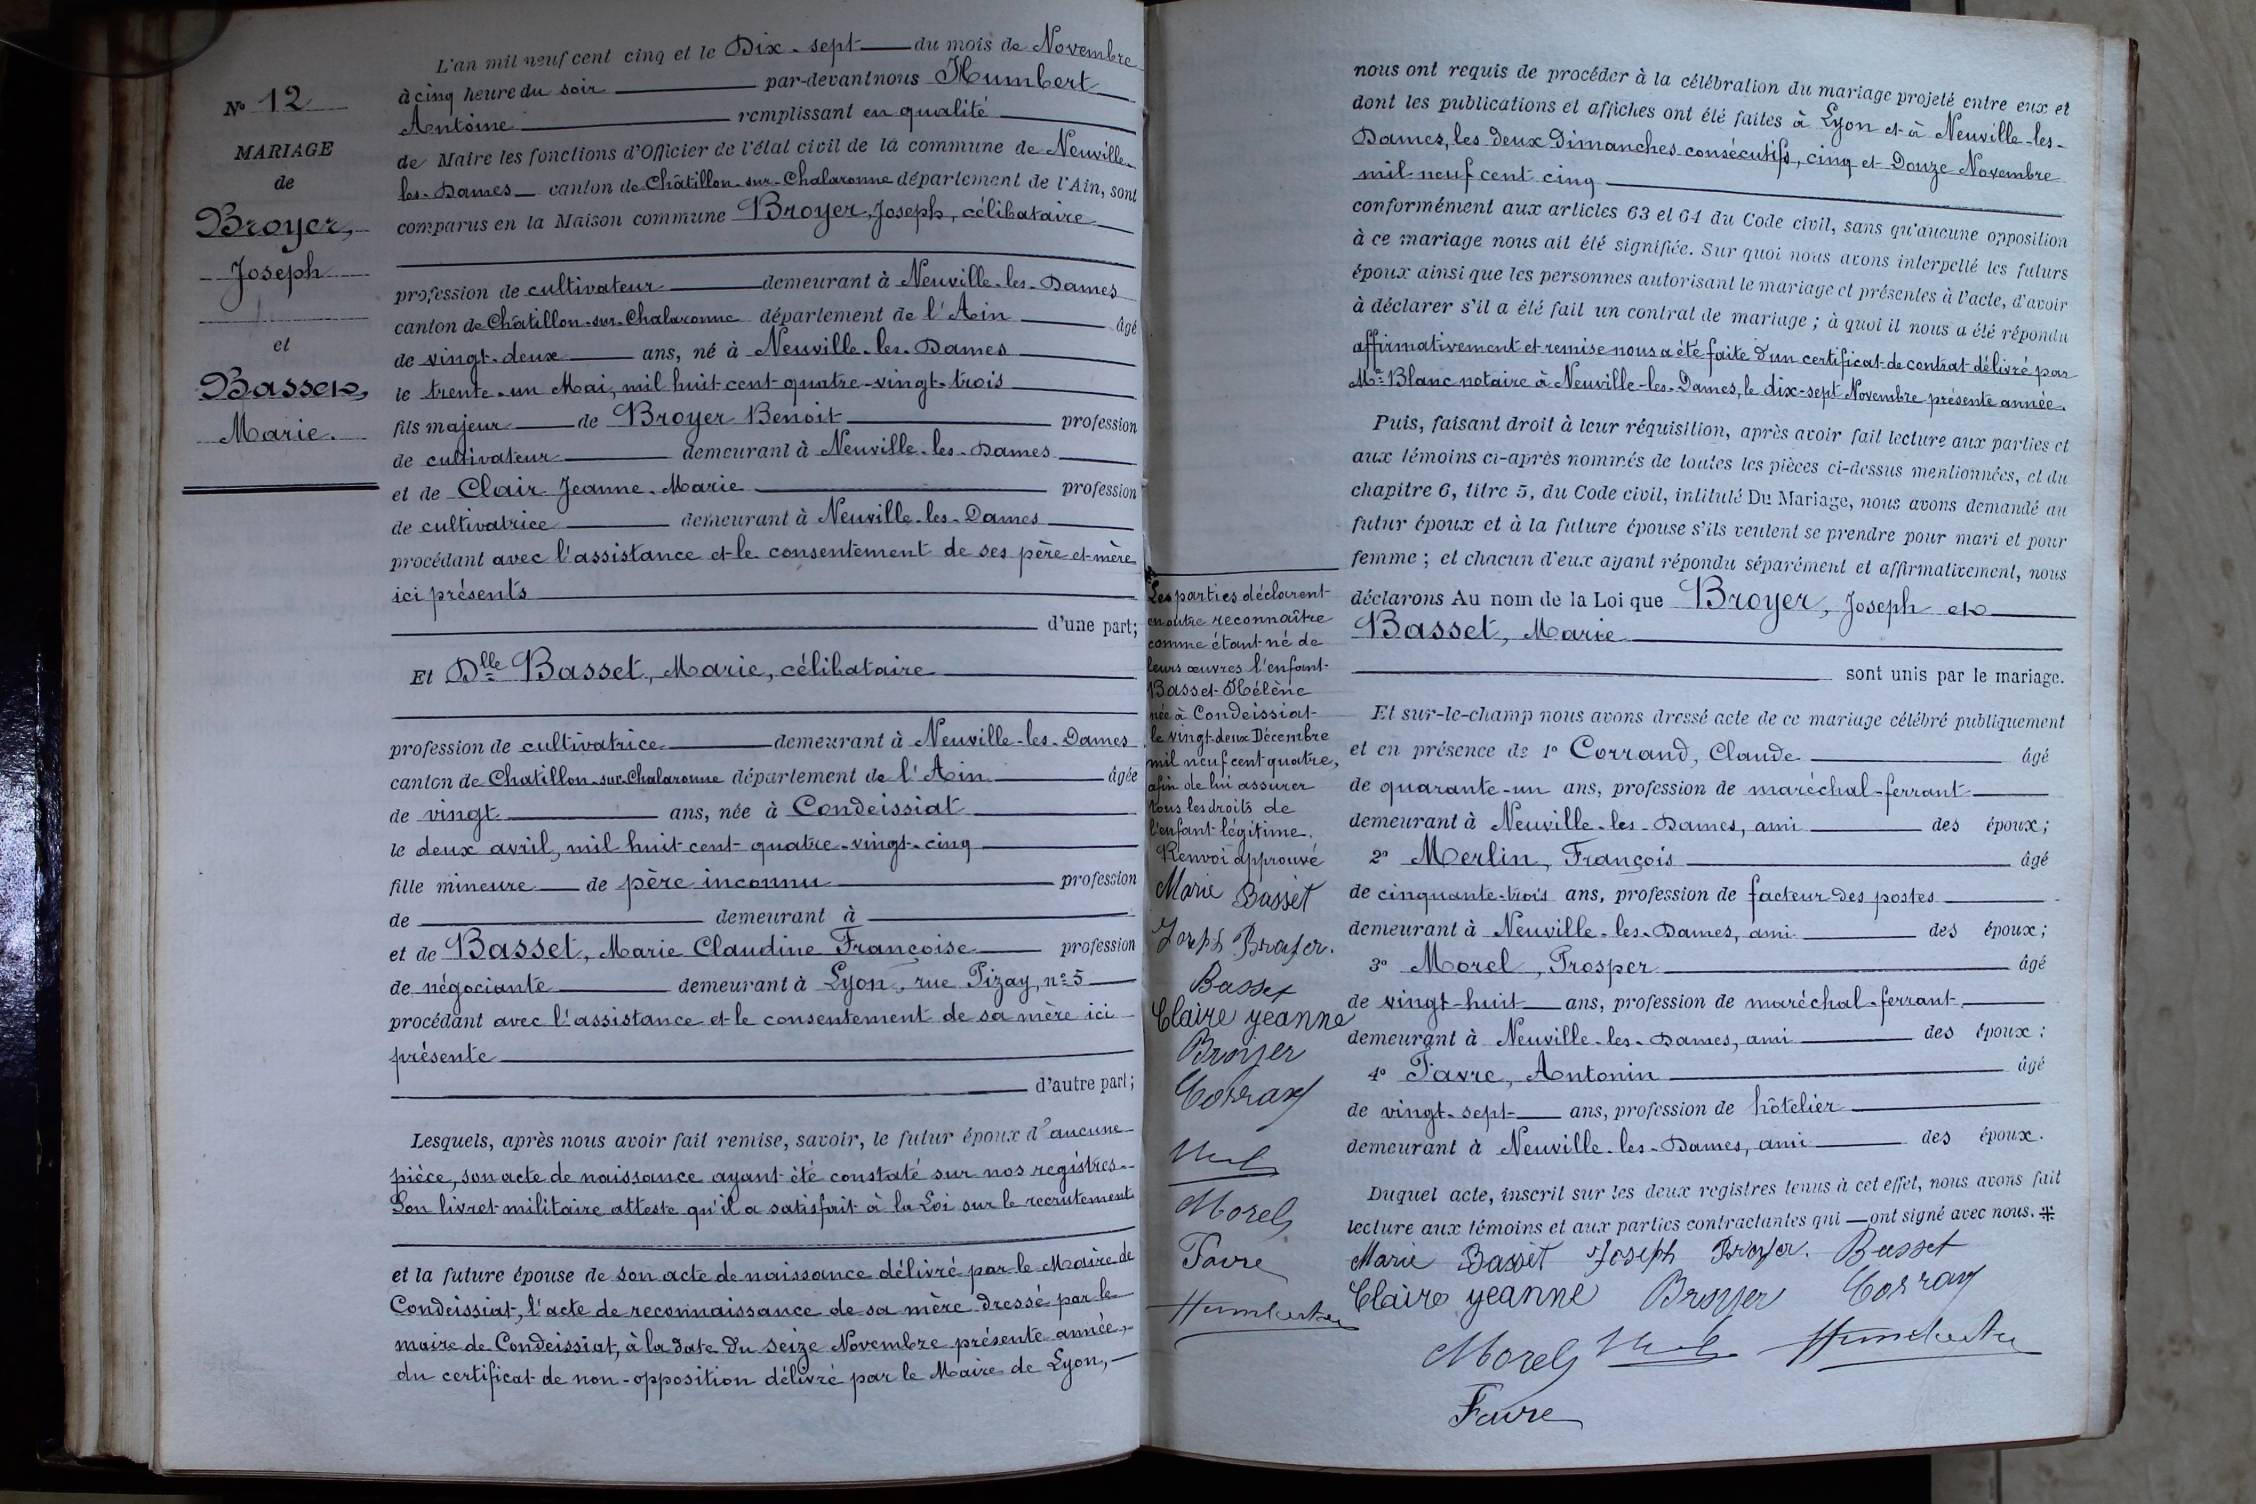 N° 12
MARIAGE
de
Broyer,
Joseph
et
Basset,
Marie.
L'an mil neuf cent cinq et le Dix-sept du mois de Novembre
à cinq heure du soir par-devant nous Humbert
Antoine remplissant en qualité
de Maire les fonctions d'Officier de l'état civil de la commune de Neuville-
les-Dames canton de Châtillon-sur-Chalaronne département de l'Ain, sont
comparus en la Maison commune Broyer, Joseph, célibataire
profession de cultivateur demeurant à Neuville-les-Dames
canton de Châtillon-sur-Chalaronne département de l'Ain âgé
de vingt-deux ans, né à Neuville-les-Dames
le trente-un Mai, mil huit cent quatre-vingt-trois
fils majeur de Broyer Benoit profession
de cultivateur demeurant à Neuville-les-Dames
et de Clair Jeanne-Marie profession
de cultivatrice demeurant à Neuville-les-Dames
procédant avec l'assistance et le consentement de ses père et mère
ici présents
d'une part;
Et Dlle Basset, Marie, célibataire
profession de cultivatrice demeurant à Neuville-les-Dames
canton de Chatillon-sur-Chalaronne département de l'Ain âgée
de vingt ans, née à Condeissiat
le deux avril, mil huit cent quatre-vingt-cinq
fille mineure de père inconnu profession
de demeurant à
et de Basset, Marie Claudine Françoise profession
de négociante demeurant à Lyon, rue Pizay, n° 5
procédant avec l'assistance et le consentement de sa mère ici
présente
d'autre part;
Lesquels, après nous avoir fait remise, savoir, le futur époux d'aucune
pièce, son acte de naissance ayant été constaté sur nos registres.
Son livret militaire atteste qu'il a satisfait à la Loi sur le recrutement
et la future épouse de son acte de naissance délivré par le Maire de
Condeissiat, l'acte de reconnaissance de sa mère dressé par le
maire de Condeissiat, à la date du seize Novembre présente année,
du certificat de non-opposition délivré par le Maire de Lyon,
Les parties déclarent
en outre reconnaître
comme étant né de
leurs œuvres l'enfant
Basset Hélène
née à Condeissiat
le vingt-deux Décembre
mil neuf cent quatre,
afin de lui assurer
tous les droits de
l'enfant légitime.
Renvoi approuvé
Marie Basset
Joseph Broyer.
Basset
Claire jeanne
Broyer
Corrand
Morel
Favre
Humbert
nous ont requis de procéder à la célébration du mariage projeté entre eux et
dont les publications et affiches ont été faites à Lyon et à Neuville-les-
Dames, les deux Dimanches consécutifs, cinq et Douze Novembre
mil neuf cent cinq
conformément aux articles 63 et 64 du Code civil, sans qu'aucune opposition
à ce mariage nous ait été signifiée. Sur quoi nous avons interpellé les futurs
époux ainsi que les personnes autorisant le mariage et présentes à l'acte, d'avoir
à déclarer s'il a été fait un contrat de mariage; à quoi il nous a été répondu
affirmativement et remise nous a été faite d'un certificat de contrat délivré par
Me Blanc notaire à Neuville-les-Dames, le dix-sept Novembre présente année.
Puis, faisant droit à leur réquisition, après avoir fait lecture aux parties et
aux témoins ci-après nommés de toutes les pièces ci-dessus mentionnées, et du
chapitre 6, titre 5, du Code civil, intitulé Du Mariage, nous avons demandé au
futur époux et à la future épouse s'ils veulent se prendre pour mari et pour
femme; et chacun d'eux ayant répondu séparément et affirmativement, nous
déclarons Au nom de la Loi que Broyer, Joseph et
Basset, Marie
sont unis par le mariage.
Et sur-le-champ nous avons dressé acte de ce mariage célébré publiquement
et en présence de 1° Corrand, Claude âgé
de quarante-un ans, profession de maréchal-ferrant
demeurant à Neuville-les-Dames, ami des époux;
2° Merlin, François âgé
de cinquante-trois ans, profession de facteur des postes
demeurant à Neuville-les-Dames, ami des époux;
3° Morel, Prosper âgé
de vingt-huit ans, profession de maréchal-ferrant
demeurant à Neuville-les-Dames, ami des époux:
4° Favre, Antonin âgé
de vingt-sept ans, profession de hôtelier
demeurant à Neuville-les-Dames, ami des époux.
Duquel acte, inscrit sur les deux registres tenus à cet effet, nous avons fait
lecture aux témoins et aux parties contractantes qui ont signé avec nous. ⁜
Marie Basset Joseph Broyer. Basset
Claire jeanne Broyer Corrand
Morel Humbert
Favre